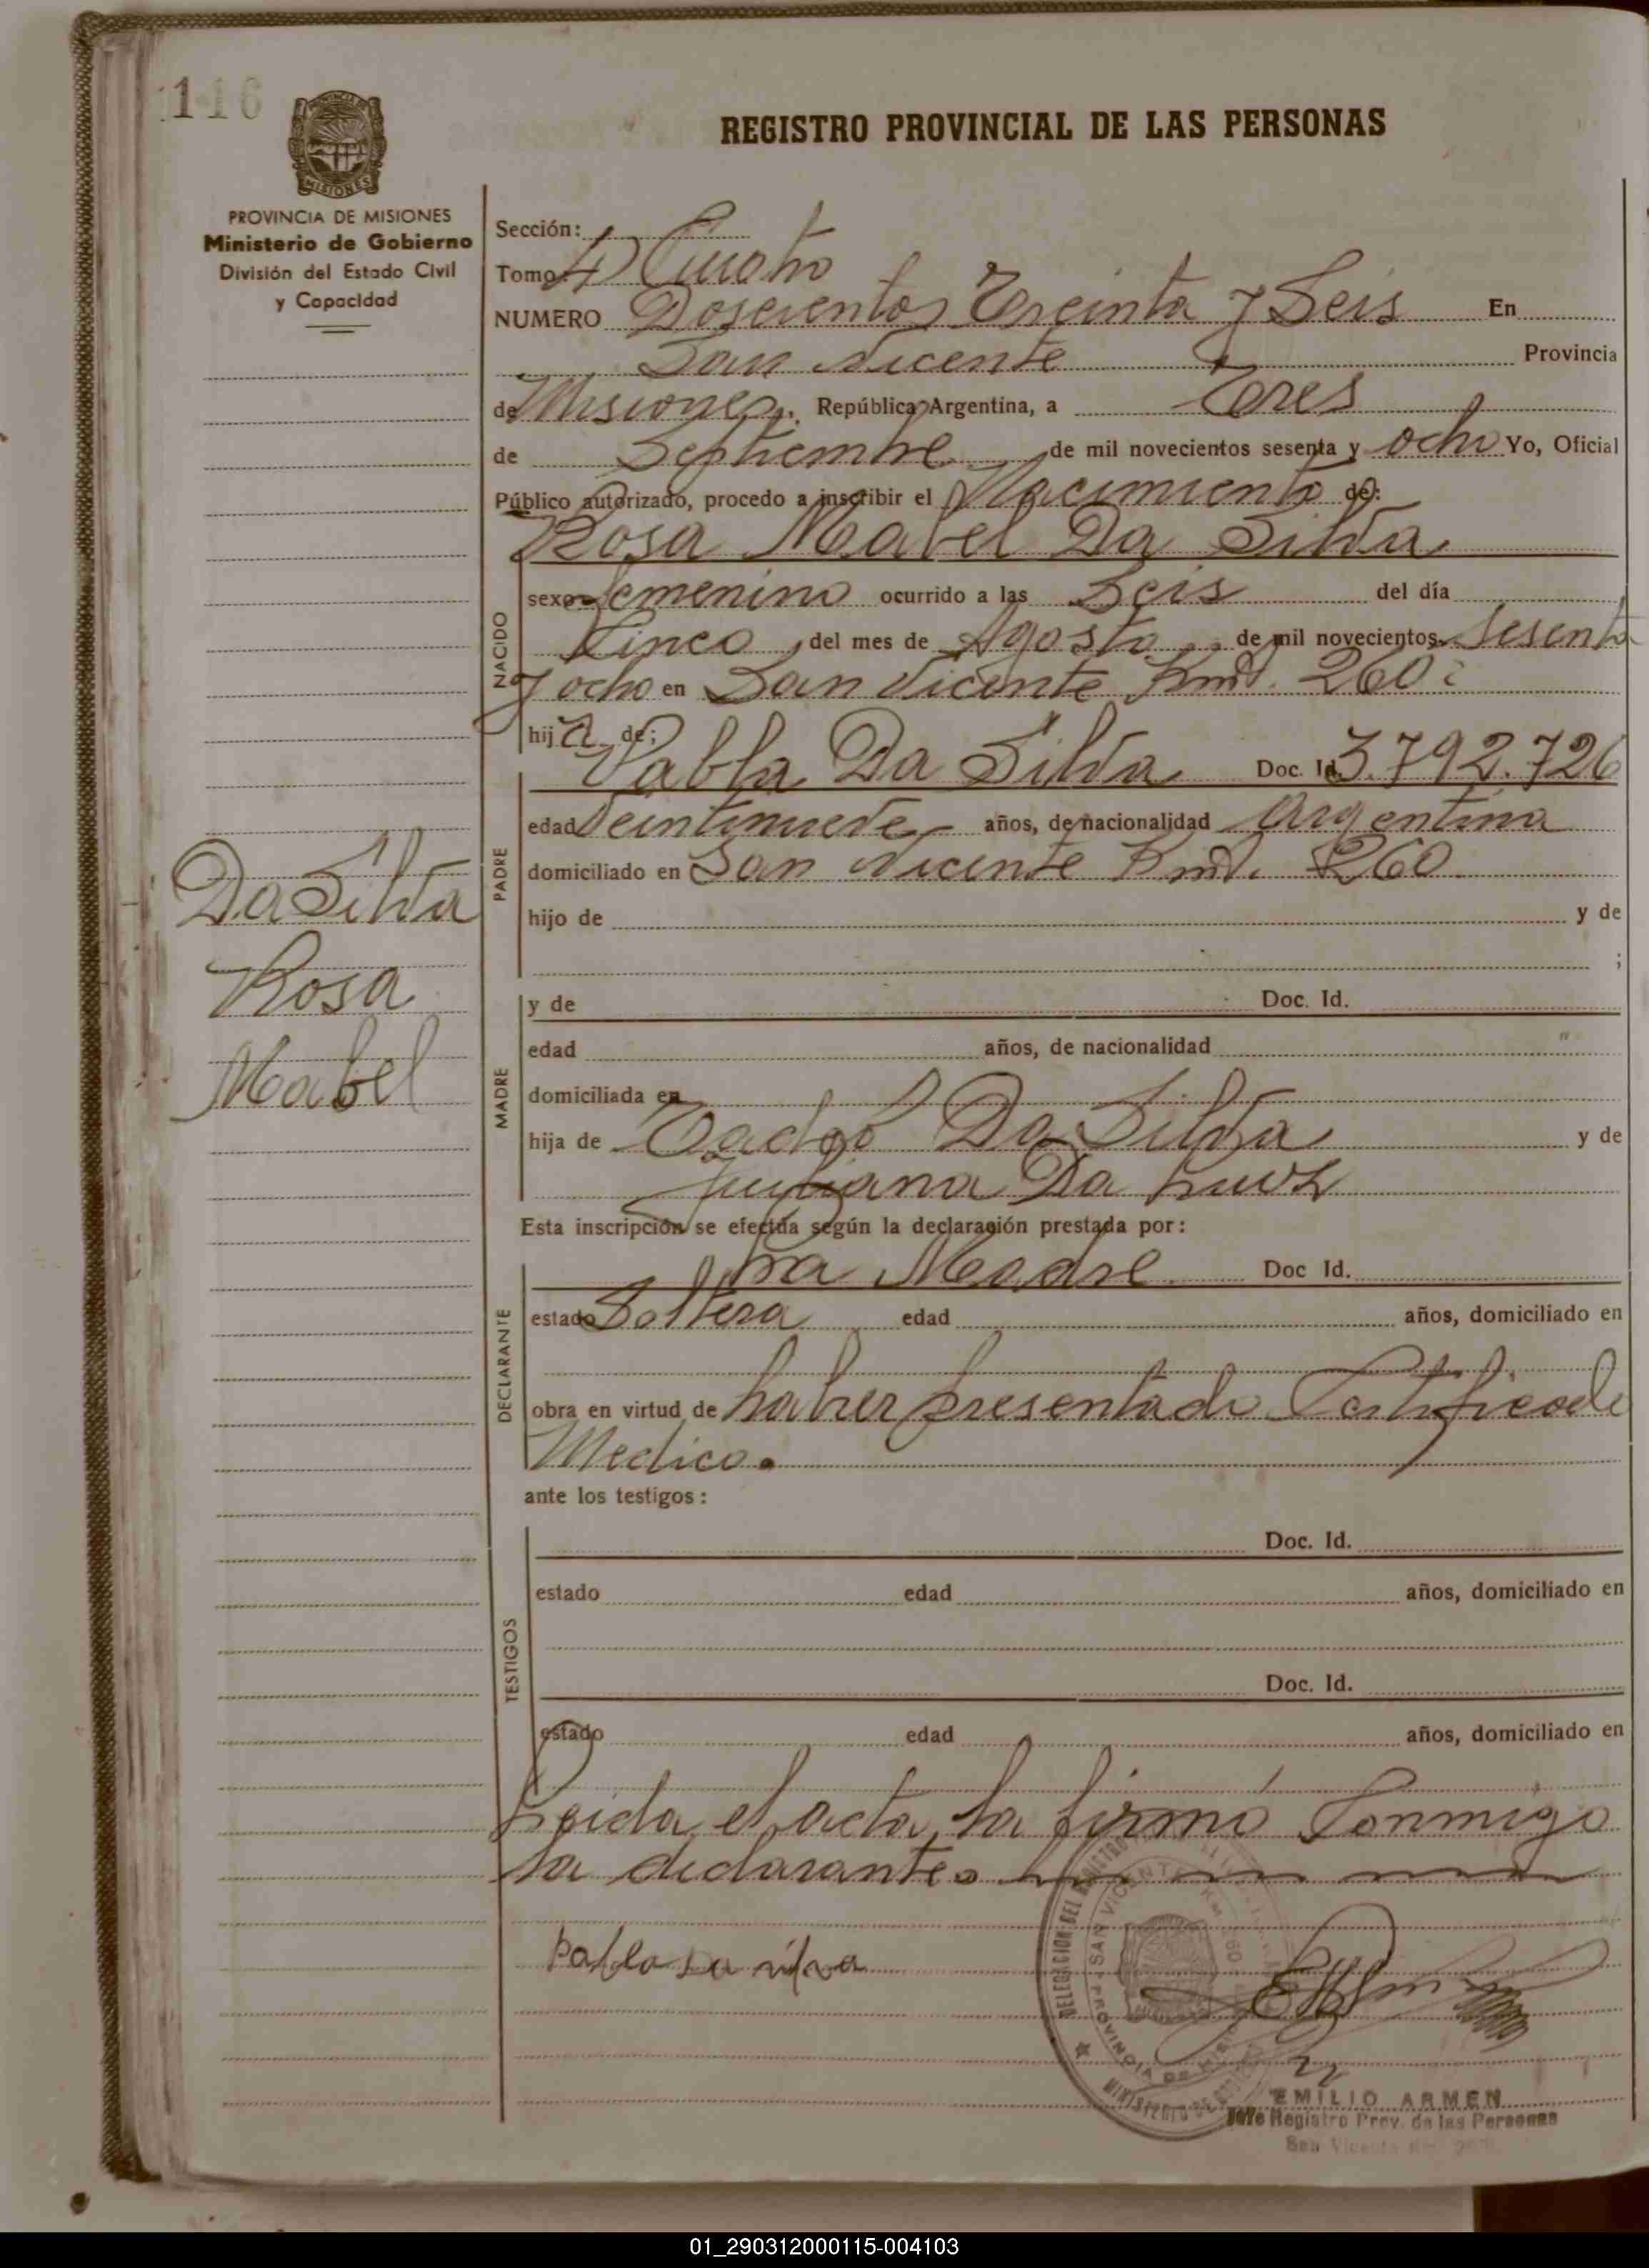 116
MISIONES
PROVINCIA DE MISIONES
Ministerio de Gobierno
División del Estado Civil
y Capacidad
REGISTRO PROVINCIAL DE LAS PERSONAS
Sección:
Tomo: 4) Cuarto
NUMERO Doscientos Treinta y Seis En
San Vicente Provincia
de Misiones. República Argentina, a Tres
de Septiembre de mil novecientos sesenta y ocho Yo, Oficial
Público autorizado, procedo a inscribir el Nacimiento de:
Rosa Mabel Da Silva
NACIDO
sexo femenino ocurrido a las Seis del día
Cinco del mes de Agosto de mil novecientos Sesenta
y ocho en San Vicente Kmt. 260:
hija de:
Pabla Da Silva Doc. Id. 3.792.726
PADRE
edad Veintinueve años, de nacionalidad Argentina
domiciliado en San Vicente Kmt. 260
hijo de y de
;
Da Silva
Rosa
Mabel
MADRE
y de Doc. Id.
edad años, de nacionalidad
domiciliada en
hija de Tadeo Da Silva y de
Juliana Da
Esta inscripción se efectúa según la declaración prestada por:
DECLARANTE
la Madre Doc Id.
estado Soltera edad años, domiciliado en
obra en virtud de haber presentado Certificado
Medico.
ante los testigos:
TESTIGOS
Doc. Id.
estado edad años, domiciliado en
Doc. Id.
estado edad años, domiciliado en
Leida el acta, la firmó Conmigo
la declarante.
Pabla Da silva
DELEGACION DEL REGISTRO
SAN VICENTE KM 260
PROVINCIA DE
MINISTERIO DE
EMILIO ARMEN
Jefe Registro Prov. de las Personas
San Vicente
01_290312000115-004103